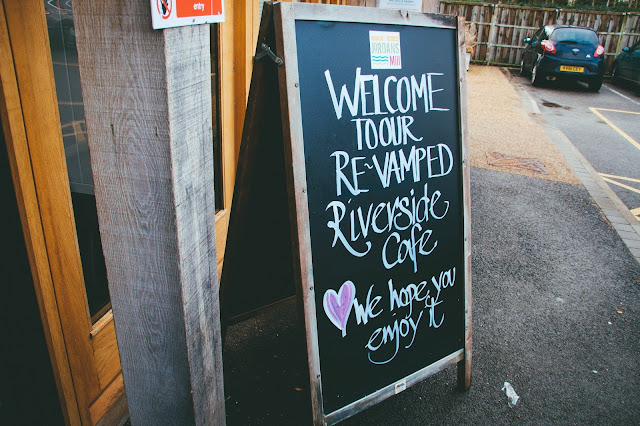 entry
JORDANS
Mill
WELCOME
TO OUR
RE~VAMPED
Riverside
Cafe
We hope you
enjoy it